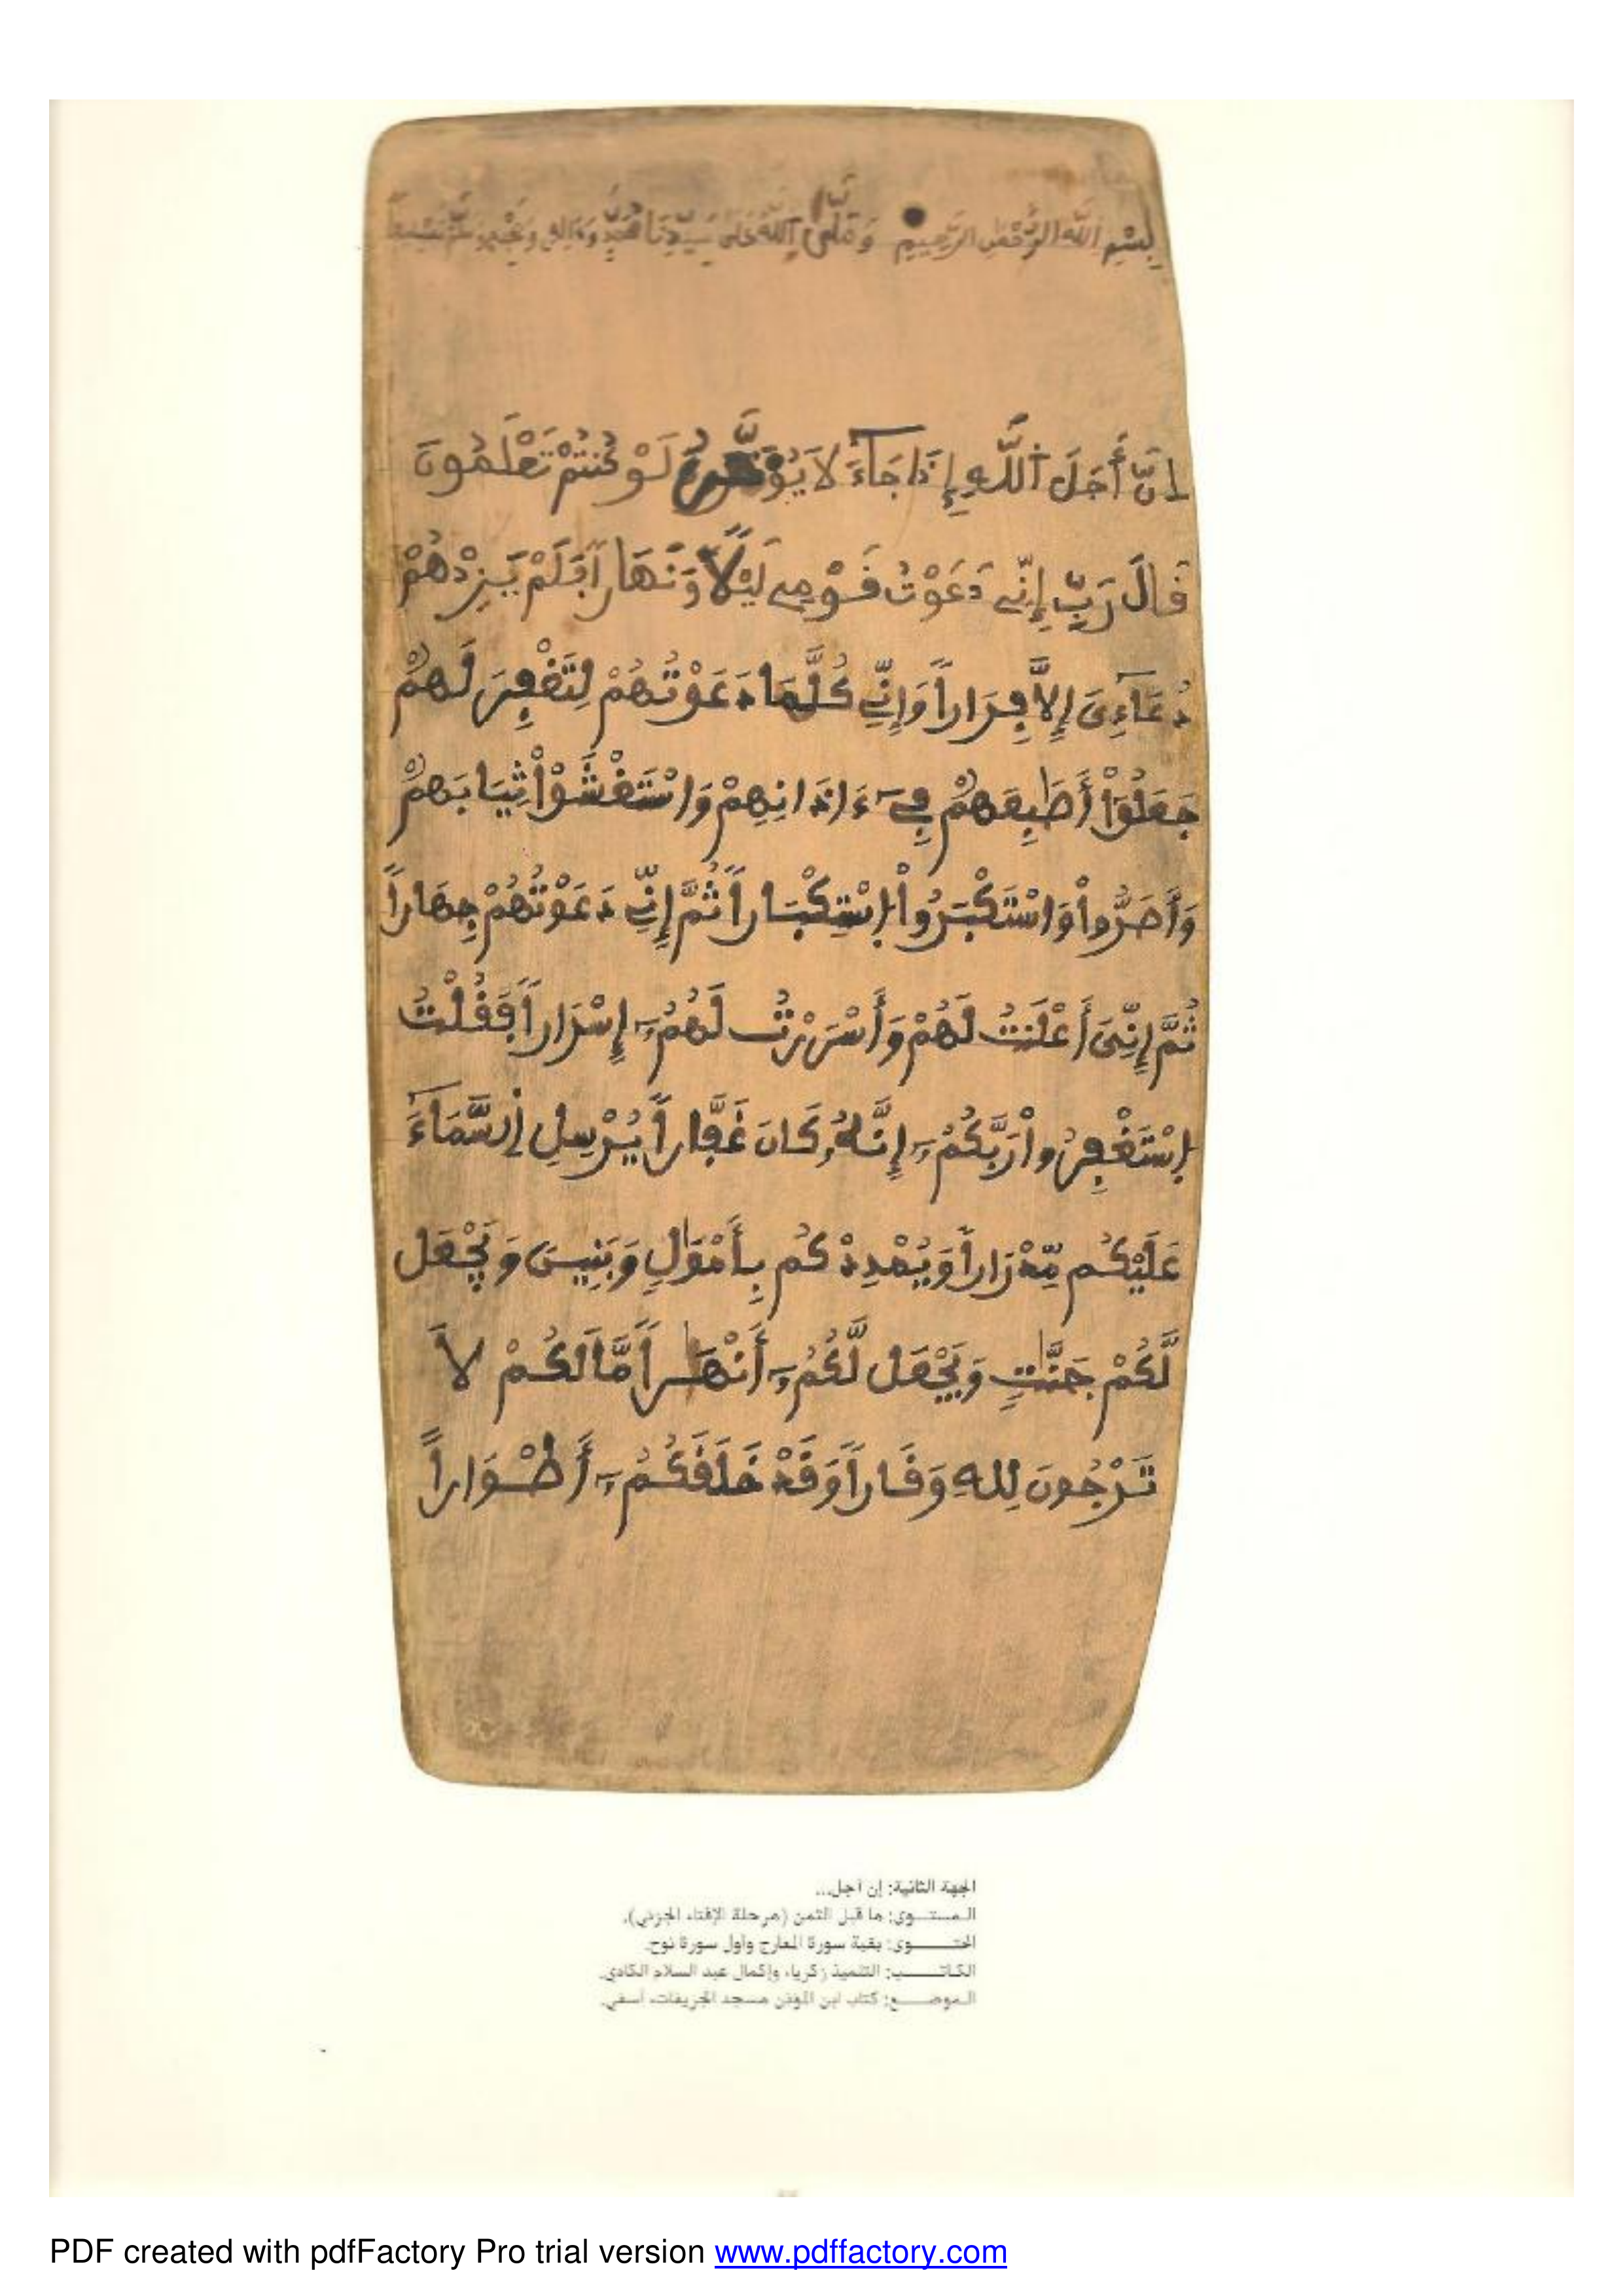 بِسْمِ اللَّهِ الرَّحْمَنِ الرَّحِيمِ وَصَلَّى اللَّهُ عَلَى سَيِّدِنَا مُحَمَّدٍ وَءَالِهِ وَصَحْبِهِ وَسَلَّمَ تَسْلِيماً
إِنَّ أَجَلَ اَللَّهِ إِذَا جَاءَ لَا يُؤَخَّرُ لَوْ كُنتُمْ تَعْلَمُونَ
قَالَ رَبِّ إِنِّے دَعَوْتُ قَوْمِے لَيْلاً وَنَهَاراً فَلَمْ يَزِدْهُمْ
دُعَآءِىَ إِلاَّ فِرَاراً وَإِنِّے كُلَّمَا دَعَوْتُهُمْ لِتَغْفِرَ لَهُمْ
جَعَلُوٓاْ أَصَٰبِعَهُمْ فِےٓ ءَاذَانِهِمْ وَاسْتَغْشَوْاْ ثِيَابَهُمْ
وَأَصَرُّواْ وَاسْتَكْبَرُواْ اِسْتِكْبَاراً ثُمَّ إِنِّے دَعَوْتُهُمْ جِهَاراً
ثُمَّ إِنِّىَ أَعْلَنتُ لَهُمْ وَأَسْرَرْتُ لَهُمُۥٓ إِسْرَاراً فَقُلْتُ
اِسْتَغْفِرُواْ رَبَّكُمُۥٓ إِنَّهُۥ كَانَ غَفَّاراً يُرْسِلِ اِلسَّمَآءَ
عَلَيْكُم مِّدْرَاراً وَيُمْدِدْكُم بِأَمْوَٰلٍ وَبَنِينَ وَيَجْعَل
لَّكُمْ جَنَّٰتٍ وَيَجْعَل لَّكُمُۥٓ أَنْهَٰراً مَّا لَكُمْ لاَ
تَرْجُونَ لِلهِ وَقَاراً وَقَدْ خَلَقَكُمُۥٓ أَطْوَاراً
الجهة الثانية: إن أجل...
المستوى: ما قبل الثمن (مرحلة الإفتاء الجزئي).
المحتوى: بقية سورة المعارج وأول سورة نوح.
الكاتب: التلميذ زكرياء وإكمال عبد السلام الكادي.
الموضع: كتاب ابن المؤذن مسجد الجريفات، أسفي.
PDF created with pdfFactory Pro trial version www.pdffactory.com